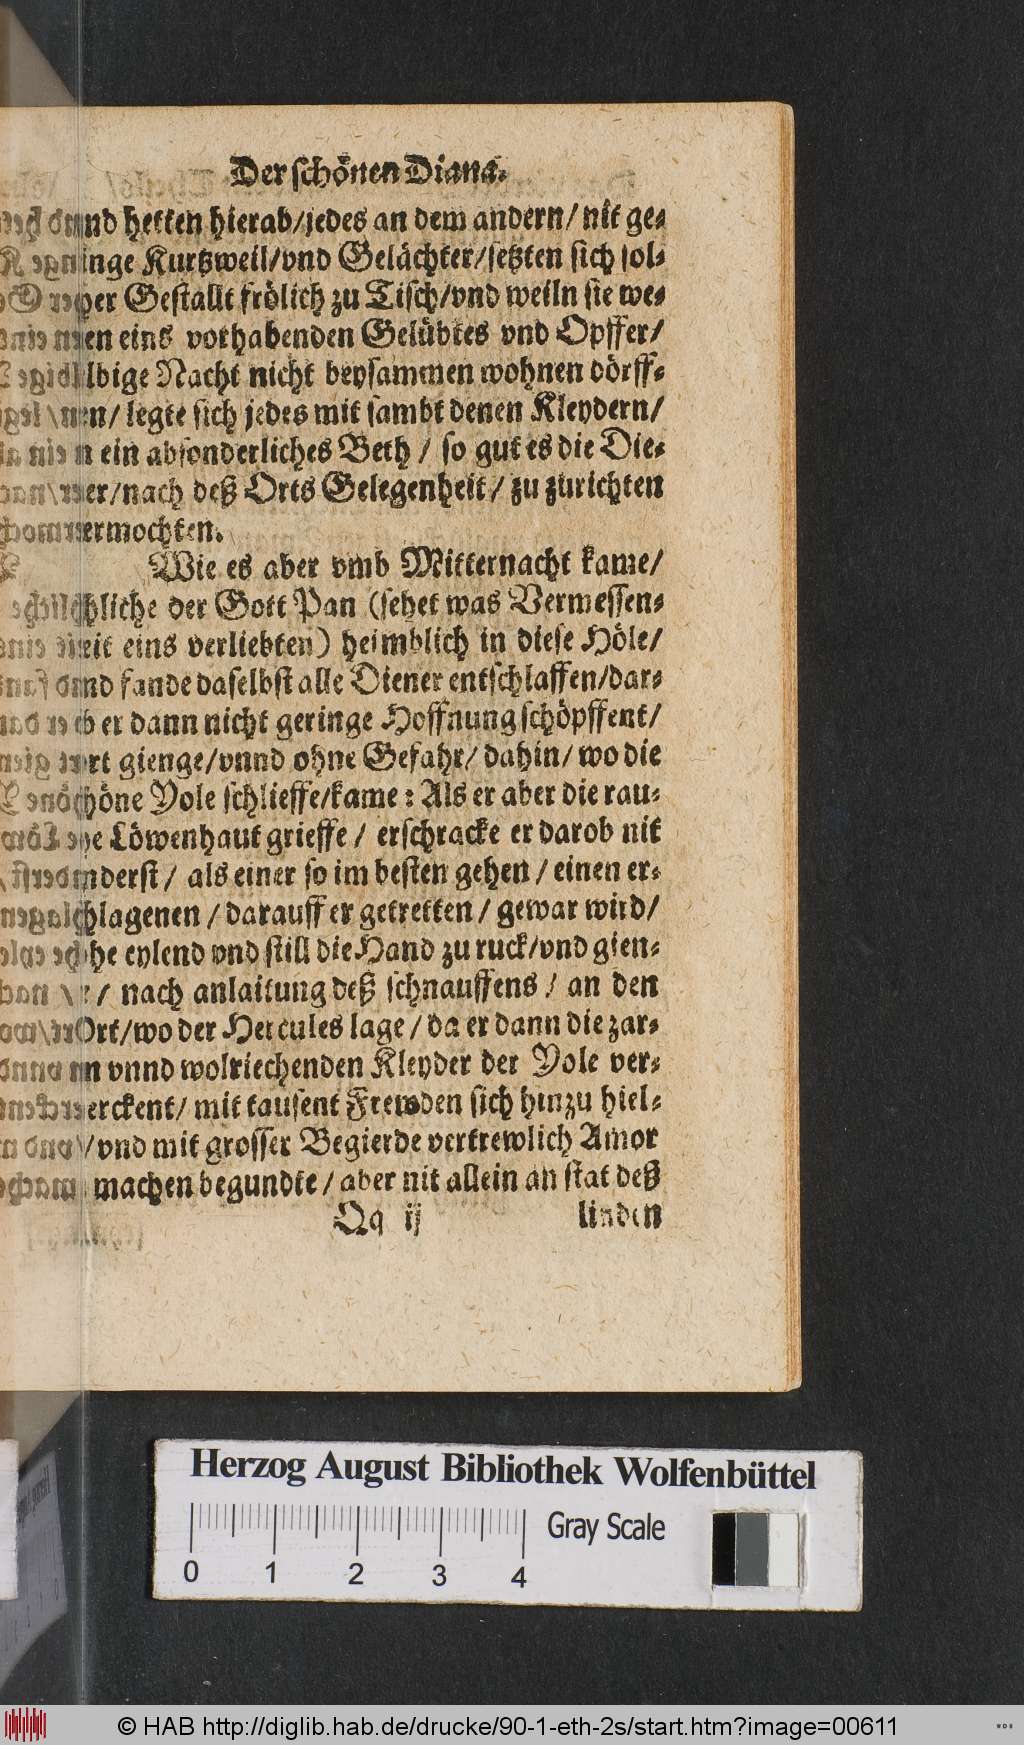 Der schönen Diana.
vnd hetten hierab/jedes an dem andern/ nit ge-
ringe Kurtzweil/vnd Gelächter/setzten sich sol-
cher Gestallt frölich zu Tisch/vnd weiln sie we-
gen eins vorhabenden Gelübtes vnd Opffer/
selbige Nacht nicht beysammen wohnen dörff-
ten/ legte sich jedes mit sambt denen Kleydern/
in ein absonderliches Beth / so gut es die Die-
ner/nach deß Orts Gelegenheit/ zu zurichten
vermochten.
Wie es aber vmb Mitternacht kame/
schliche der Gott Pan (sehet was Vermessen-
heit eins verliebten) heimblich in diese Höle/
vnd fande daselbst alle Diener entschlaffen/dar-
ob er dann nicht geringe Hoffnung schöpffent/
fort gienge/vnnd ohne Gefahr/ dahin/ wo die
schöne Yole schlieffe/kame: Als er aber die rau-
he Löwenhaut grieffe / erschracke er darob nit
anderst/ als einer so im besten gehen / einen er-
schlagenen / darauff er getretten / gewar wird/
zohe eylend vnd still die Hand zu ruck/vnd gien-
ge / nach anlaitung deß schnauffens / an den
Ort/wo der Hercules lage / da er dann die zar-
ten vnnd wolriechenden Kleyder der Yole ver-
merckent/ mit tausent Frewden sich hinzu hiel-
te/vnd mit grosser Begierde vertrewlich Amor
machen begundte/ aber nit allein an stat deß
Qq ij linden
Herzog August Bibliothek Wolfenbüttel
Gray Scale
0 1 2 3 4
© HAB http://diglib.hab.de/drucke/90-1-eth-2s/start.htm?image=00611